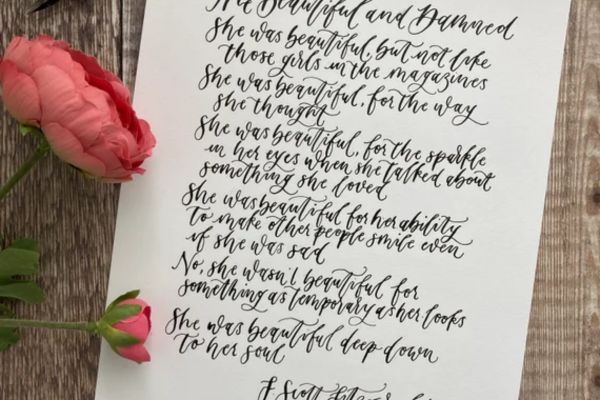 The Beautiful and Damned
She was beautiful, but not like
those girls in the magazines
She was beautiful, for the way
she thought
She was beautiful, for the sparkle
in her eyes when she talked about
something she loved
She was beautiful for her ability
to make other people smile even
if she was sad
No, she wasn't beautiful for
something as temporary as her looks
She was beautiful deep down
to her soul
F. Scott